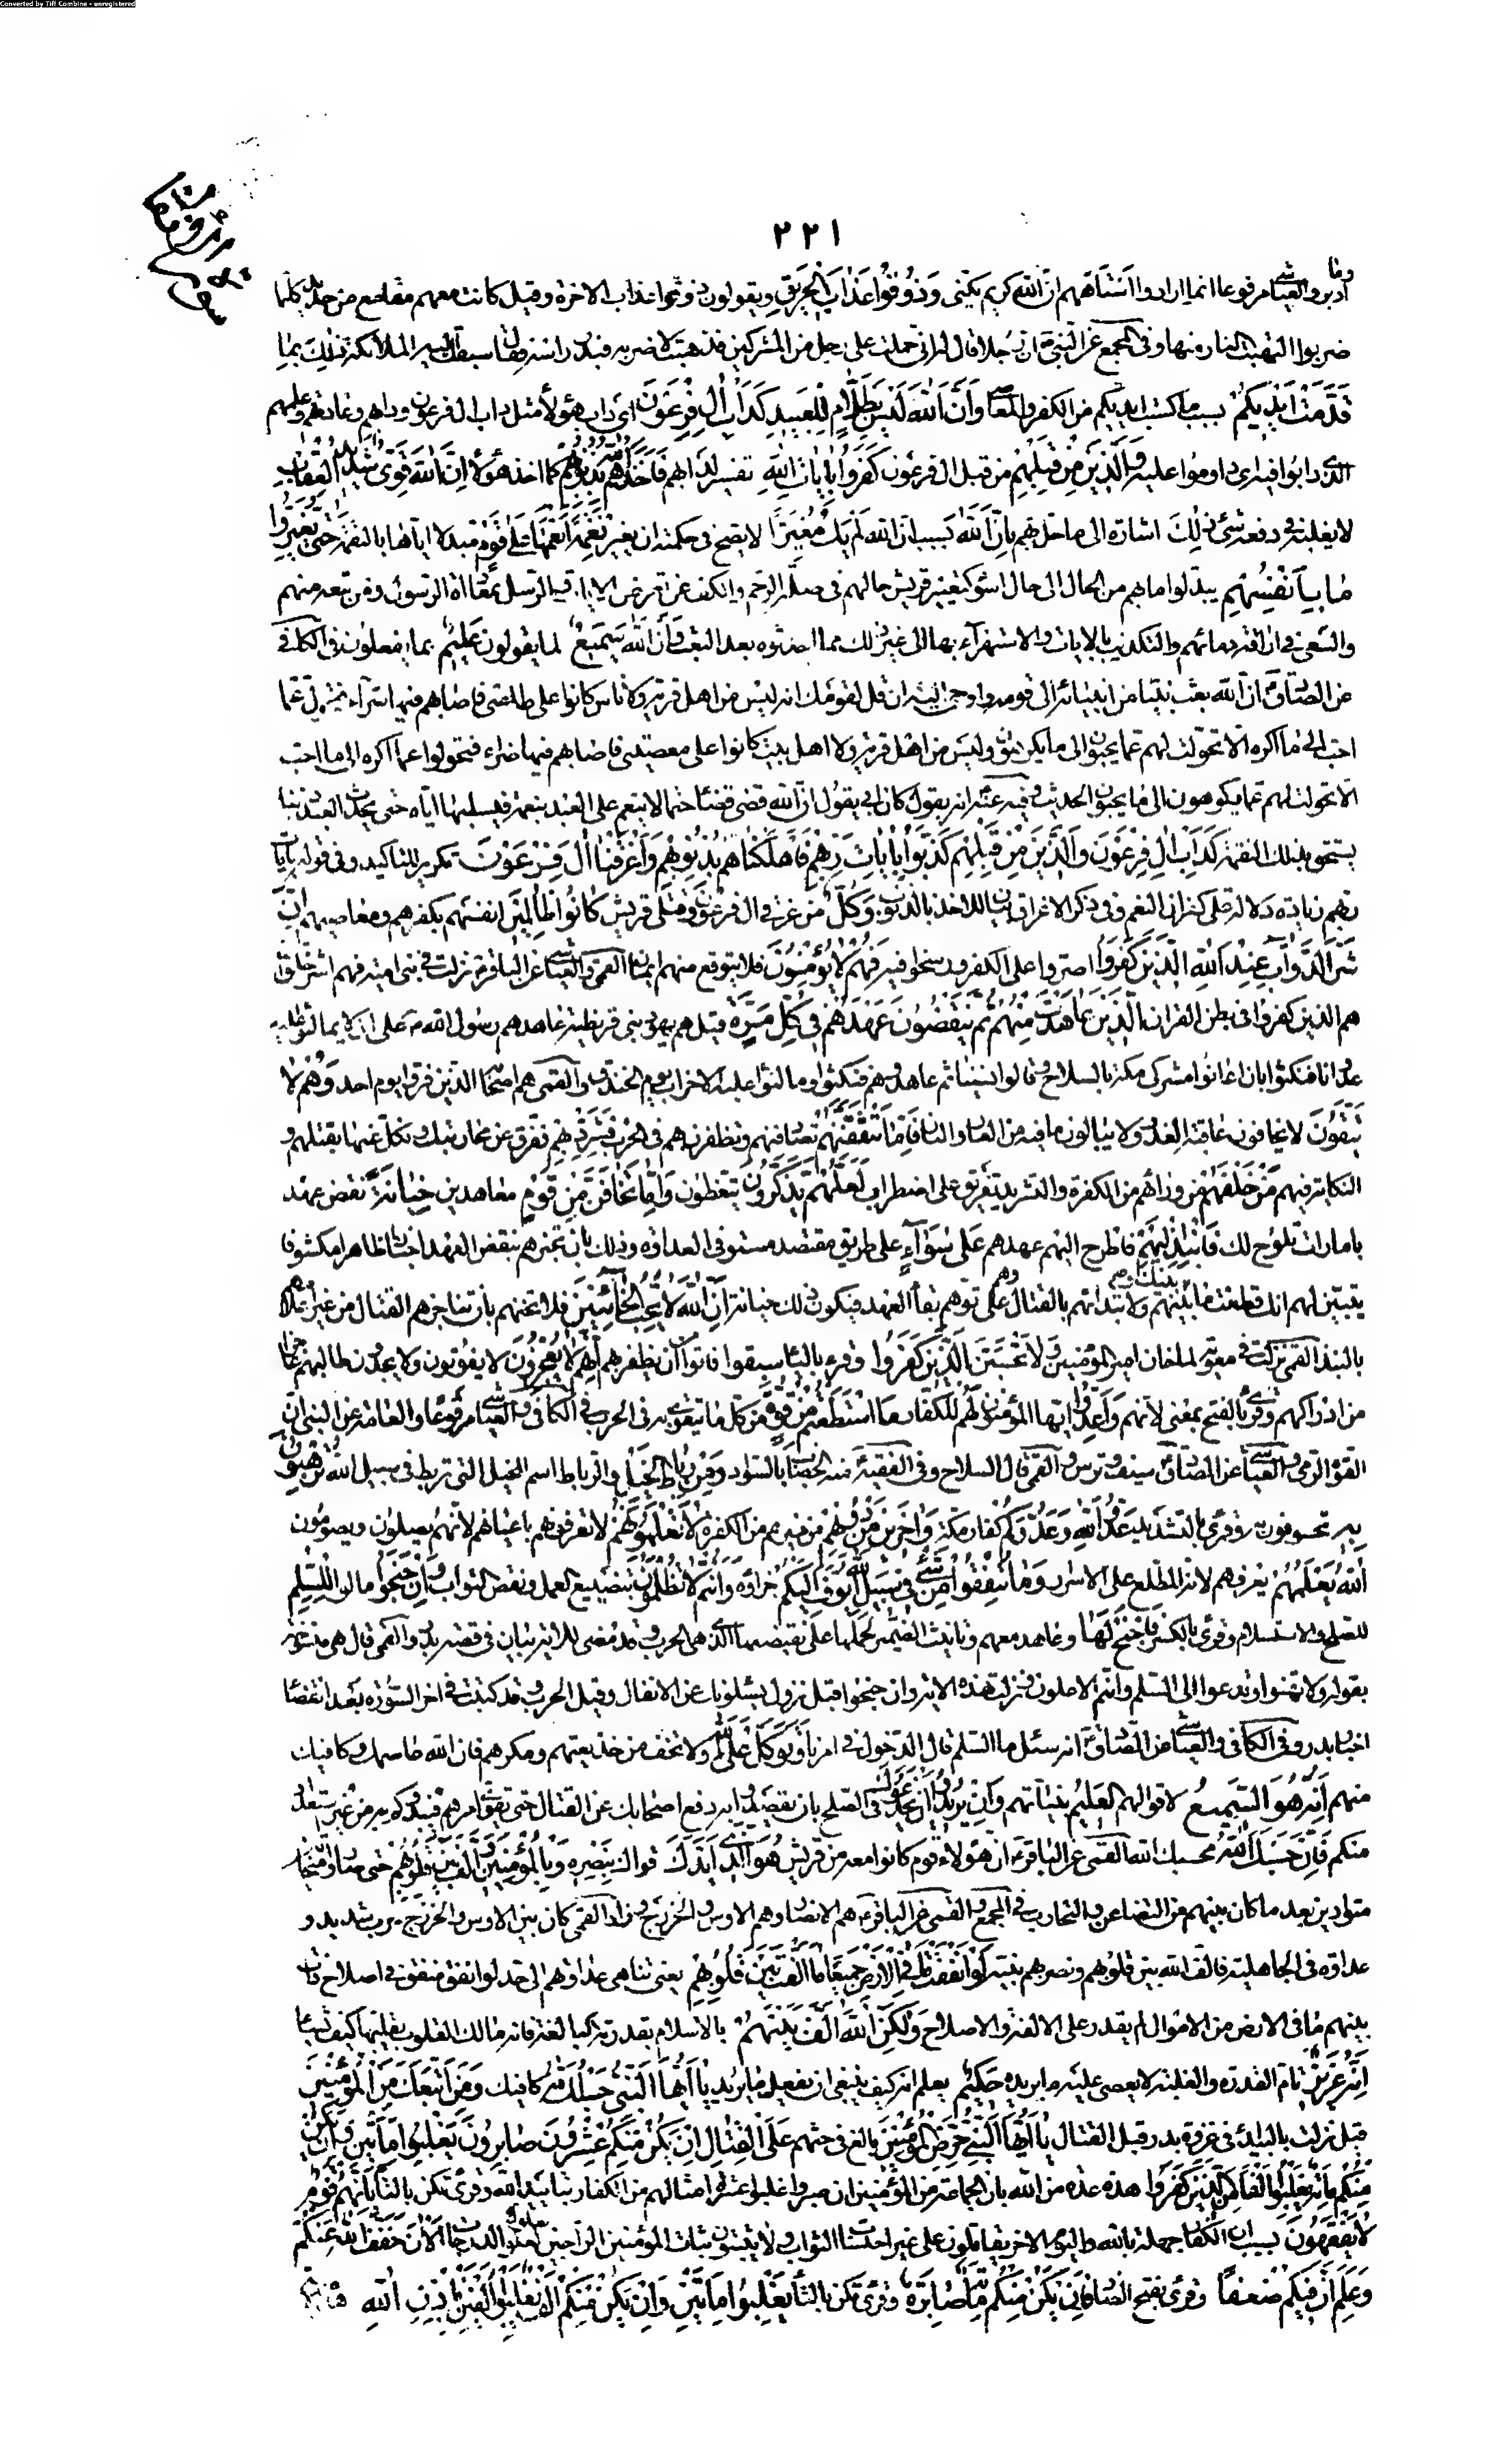 Converted by Tiff Combine - unregistered
٢٢١
وما
ادبر والعياشي مرفوعا انما ارادوا استاههم ان الله كريم يكني وَذُوقُوا عَذَابَ الْحَرِيقِ ويقولون ذوقوا عذاب الاخرة وقيل كانت معهم مقامع من حديد كلما
ضربوا التهبت النار منها وفي المجمع عن النبي ان رجلا قال له اني حملت على رجل من المشركين فذهبت لاضربه فبدر راسه فقال سبقك اليه الملائكة ذٰلِكَ بِمٰا
قَدَّمَتْ اَيْدِيكُمْ بسبب ما كسبت ايديكم من الكفر والمعاصي وَاَنَّ اللهَ لَيْسَ بِظَلَّامٍ لِلْعَبِيدِ كَدَأْبِ اٰلِ فِرْعَوْنَ اي داب هؤلاء مثل داب ال فرعون ودابهم وعادتهم وعملهم
الذي دابوا فيه اي داوموا عليه وَالَّذِينَ مِنْ قَبْلِهِمْ من قبل ال فرعون كَفَرُوا بِاٰيٰاتِ اللهِ تفسير لدابهم فَاَخَذَهُمُ اللهُ بِذُنُوبِهِمْ كما اخذ هؤلاء اِنَّ اللهَ قَوِيٌّ شَدِيدُ الْعِقٰابِ
لا يغلبه في دفعه شئ ذٰلِكَ اشارة الى ما حل بهم بِاَنَّ اللهَ بسبب ان الله لَمْ يَكُ مُغَيِّرًا لا يصح في حكمته ان يغير نِعْمَةً اَنْعَمَهٰا عَلىٰ قَوْمٍ مبدلا اياها بالنقمة حَتّٰى يُغَيِّرُوا
مٰا بِاَنْفُسِهِمْ يبدلوا ما بهم من الحال الى حال اسوء كتغيير قريش حالهم في صلة الرحم والكف عن تعرض الايات والرسل بمعاداة الرسول ومن تبعه منهم
والسعي في اراقة دمائهم والتكذيب بالايات والاستهزاء بها الى غير ذلك مما احدثوه بعد البعث وَاَنَّ اللهَ سَمِيعٌ لما يقولون عَلِيمٌ بما يفعلون في الكافي
عن الصادق ان الله بعث نبيا من انبيائه الى قومه واوحى اليه ان قل لقومك انه ليس من اهل قرية ولا ناس كانوا على طاعتي فاصابهم فيها سراء فتحولوا عما
احب الى ما اكره الا تحولت لهم عما يحبون الى ما يكرهون وليس من اهل قرية ولا اهل بيت كانوا على معصيتي فاصابهم فيها ضراء فتحولوا عما اكره الى ما احب
الا تحولت لهم عما يكرهون الى ما يحبون الحديث وفيه عنه انه يقول كان ابي يقول ان الله قضى قضاء حتما الا ينعم على العبد بنعمة فيسلبها اياه حتى يحدث العبد ذنبا
يستحق بذلك النقمة كَدَأْبِ اٰلِ فِرْعَوْنَ وَالَّذِينَ مِنْ قَبْلِهِمْ كَذَّبُوا بِاٰيٰاتِ رَبِّهِمْ فَاَهْلَكْنٰاهُمْ بِذُنُوبِهِمْ وَاَغْرَقْنٰا اٰلَ فِرْعَوْنَ تكرير للتاكيد وفي قوله بايات
ربهم زيادة دلالة على كفران النعم وفي ذكر الاغراق بيان للاخذ بالذنوب وَكُلٌّ من غرقى ال فرعون وقتلى قريش كٰانُوا ظٰالِمِينَ انفسهم بكفرهم ومعاصيهم اِنَّ
شَرَّ الدَّوٰابِّ عِنْدَ اللهِ الَّذِينَ كَفَرُوا اصروا على الكفر ورسخوا فيه فَهُمْ لٰا يُؤْمِنُونَ فلا يتوقع منهم ايمان القمي والعياشي عن الباقر نزلت في بني امية فهم اشر خلق الله
هم الذين كفروا في بطن القران اَلَّذِينَ عٰاهَدْتَ مِنْهُمْ ثُمَّ يَنْقُضُونَ عَهْدَهُمْ فِي كُلِّ مَرَّةٍ قيل هم يهود بني قريظة عاهدهم رسول الله على ان لا يمالئوا عليه
عدوا فنكثوا بان اعانوا مشركي مكة بالسلاح وقالوا نسينا ثم عاهدهم فنكثوا ومالئوا عليه الاحزاب يوم الخندق والقمي هم اصحابه الذين فروا يوم احد وَهُمْ لٰا
يَتَّقُونَ لا يخافون عاقبة الغدر ولا يبالون ما فيه من العار والنار فَاِمّٰا تَثْقَفَنَّهُمْ تصادفنهم وتظفرن بهم فِي الْحَرْبِ فَشَرِّدْ بِهِمْ ففرق عن محاربتك ونكل عنها بقتلهم و
النكاية فيهم مَنْ خَلْفَهُمْ من ورائهم من الكفرة والتشريد تفريق على اضطراب لَعَلَّهُمْ يَذَّكَّرُونَ يتعظون وَاِمّٰا تَخٰافَنَّ مِنْ قَوْمٍ معاهدين خِيٰانَةً نقض عهد
بامارات تلوح لك فَانْبِذْ اِلَيْهِمْ فاطرح اليهم عهدهم عَلىٰ سَوٰاءٍ على طريق مقتصد مستو في العداوة وذلك بان تخبرهم بنقض العهد اخبارا ظاهرا مكشوفا
يتبين لهم انك قطعت ما بينك وبينهم ولا تبداهم بالقتال وهم على توهم بقاء العهد فيكون ذلك خيانة اِنَّ اللهَ لٰا يُحِبُّ الْخٰائِنِينَ فلا تخنهم بان تناجزهم القتال من غير اعلامهم
بالنبذ القمي نزلت في معوية لما خان امير المؤمنين وَلٰا تَحْسَبَنَّ الَّذِينَ كَفَرُوا وقرء بالياء سبقوا فاتوا من ان يظفر بهم اِنَّهُمْ لٰا يُعْجِزُونَ لا يفوتون ولا يجدون طالبهم عاجزا
من ادراكهم وقرئ بالفتح بمعنى لانهم وَاَعِدُّوا ايها المؤمنون لَهُمْ للكفار مَا اسْتَطَعْتُمْ مِنْ قُوَّةٍ من كل ما يتقوى به في الحرب في الكافي والعياشي مرفوعا والعامة عن النبي ان
القوة الرمي والعياشي عن الصادق سيف وترس والقمي قال السلاح وفي الفقيه منه الخضاب بالسواد وَمِنْ رِبٰاطِ الْخَيْلِ والرباط اسم الخيل التي تربط في سبيل الله تُرْهِبُونَ
بِهِ تخوفون به وقرئ بالتشديد عَدُوَّ اللهِ وَعَدُوَّكُمْ كفار مكة وَاٰخَرِينَ مِنْ دُونِهِمْ من غيرهم من الكفرة لٰا تَعْلَمُونَهُمْ لا تعرفونهم باعيانهم لانهم يصلون ويصومون
اَللهُ يَعْلَمُهُمْ يعرفهم لانه المطلع على الاسرار وَمٰا تُنْفِقُوا مِنْ شَيْءٍ فِي سَبِيلِ اللهِ يُوَفَّ اِلَيْكُمْ جزاؤه وَاَنْتُمْ لٰا تُظْلَمُونَ بتضييع العمل ونقص الثواب وَاِنْ جَنَحُوا مالوا لِلسَّلْمِ
للصلح والاستسلام وقرئ بالكسر فَاجْنَحْ لَهٰا وعاهد معهم وتانيث الضمير لحملها على نقيضها الذي هي الحرب وقد مضى للاية بيان في قصة بدر والقمي قال هي منسوخة
بقوله ولا تهنوا وتدعوا الى السلم وانتم الاعلون نزلت هذه الاية وان جنحوا قبل نزول يسئلونك عن الانفال وقبل الحرب وقد كتبت في اخر السورة بعد انقضاء
اخبار بدر وفي الكافي والعياشي عن الصادق انه سئل ما السلم قال الدخول في امرنا وَتَوَكَّلْ عَلَى اللهِ ولا تخف من خديعتهم ومكرهم فان الله عاصمك وكافيك
منهم اِنَّهُ هُوَ السَّمِيعُ لاقوالهم الْعَلِيمُ بنياتهم وَاِنْ يُرِيدُوا اَنْ يَخْدَعُوكَ في الصلح بان يقصدوا به دفع اصحابك عن القتال حتى يقوى امرهم فيبدؤكم به من غير استعداد
منكم فَاِنَّ حَسْبَكَ اللهُ محسبك الله القمي عن الباقر ان هؤلاء قوم كانوا معه من قريش هُوَ الَّذِي اَيَّدَكَ قواك بِنَصْرِهِ وَبِالْمُؤْمِنِينَ وَاَلَّفَ بَيْنَ قُلُوبِهِمْ حتى صاروا متحابين
متوادين بعد ما كان بينهم من التضاغن والتحارب في المجمع والقمي عن الباقر هم الانصار وهم الاوس والخزرج وزاد القمي كان بين الاوس والخزرج حرب شديد و
عداوة في الجاهلية فالف الله بين قلوبهم ونصر بهم نبيه لَوْ اَنْفَقْتَ مٰا فِي الْاَرْضِ جَمِيعًا مٰا اَلَّفْتَ بَيْنَ قُلُوبِهِمْ يعني تناهى عداوتهم الى حد لو انفق منفق في اصلاح ذات
بينهم ما في الارض من الاموال لم يقدر على الالفة والاصلاح وَلٰكِنَّ اللهَ اَلَّفَ بَيْنَهُمْ بالاسلام بقدرته البالغة فانه مالك القلوب يقلبها كيف يشاء
اِنَّهُ عَزِيزٌ تام القدرة والغلبة لا يعصى عليه ما يريده حَكِيمٌ يعلم انه كيف ينبغي ان يفعل ما يريد يٰا اَيُّهَا النَّبِيُّ حَسْبُكَ اللهُ كافيك وَمَنِ اتَّبَعَكَ مِنَ الْمُؤْمِنِينَ
قيل نزلت بالبيداء في غزوة بدر قبل القتال يٰا اَيُّهَا النَّبِيُّ حَرِّضِ الْمُؤْمِنِينَ بالغ في حثهم عَلَى الْقِتٰالِ اِنْ يَكُنْ مِنْكُمْ عِشْرُونَ صٰابِرُونَ يَغْلِبُوا مِائَتَيْنِ وَاِنْ يَكُنْ
مِنْكُمْ مِائَةٌ يَغْلِبُوا اَلْفًا مِنَ الَّذِينَ كَفَرُوا هذه عدة من الله بان الجماعة من المؤمنين ان صبروا غلبوا عشرة امثالهم من الكفار بتاييد الله وقرئ تكن بالتاء بِاَنَّهُمْ قَوْمٌ
لٰا يَفْقَهُونَ بسبب ان الكفار جهلة بالله واليوم الاخر يقاتلون على غير احتساب الثواب ولا يثبتون ثبات المؤمنين الراجين لعوالي الدرجات اَلْاٰنَ خَفَّفَ اللهُ عَنْكُمْ
وَعَلِمَ اَنَّ فِيكُمْ ضَعْفًا وقرئ بفتح الضاد فَاِنْ يَكُنْ مِنْكُمْ مِائَةٌ صٰابِرَةٌ وقرئ تكن بالتاء يَغْلِبُوا مِائَتَيْنِ وَاِنْ يَكُنْ مِنْكُمْ اَلْفٌ يَغْلِبُوا اَلْفَيْنِ بِاِذْنِ اللهِ